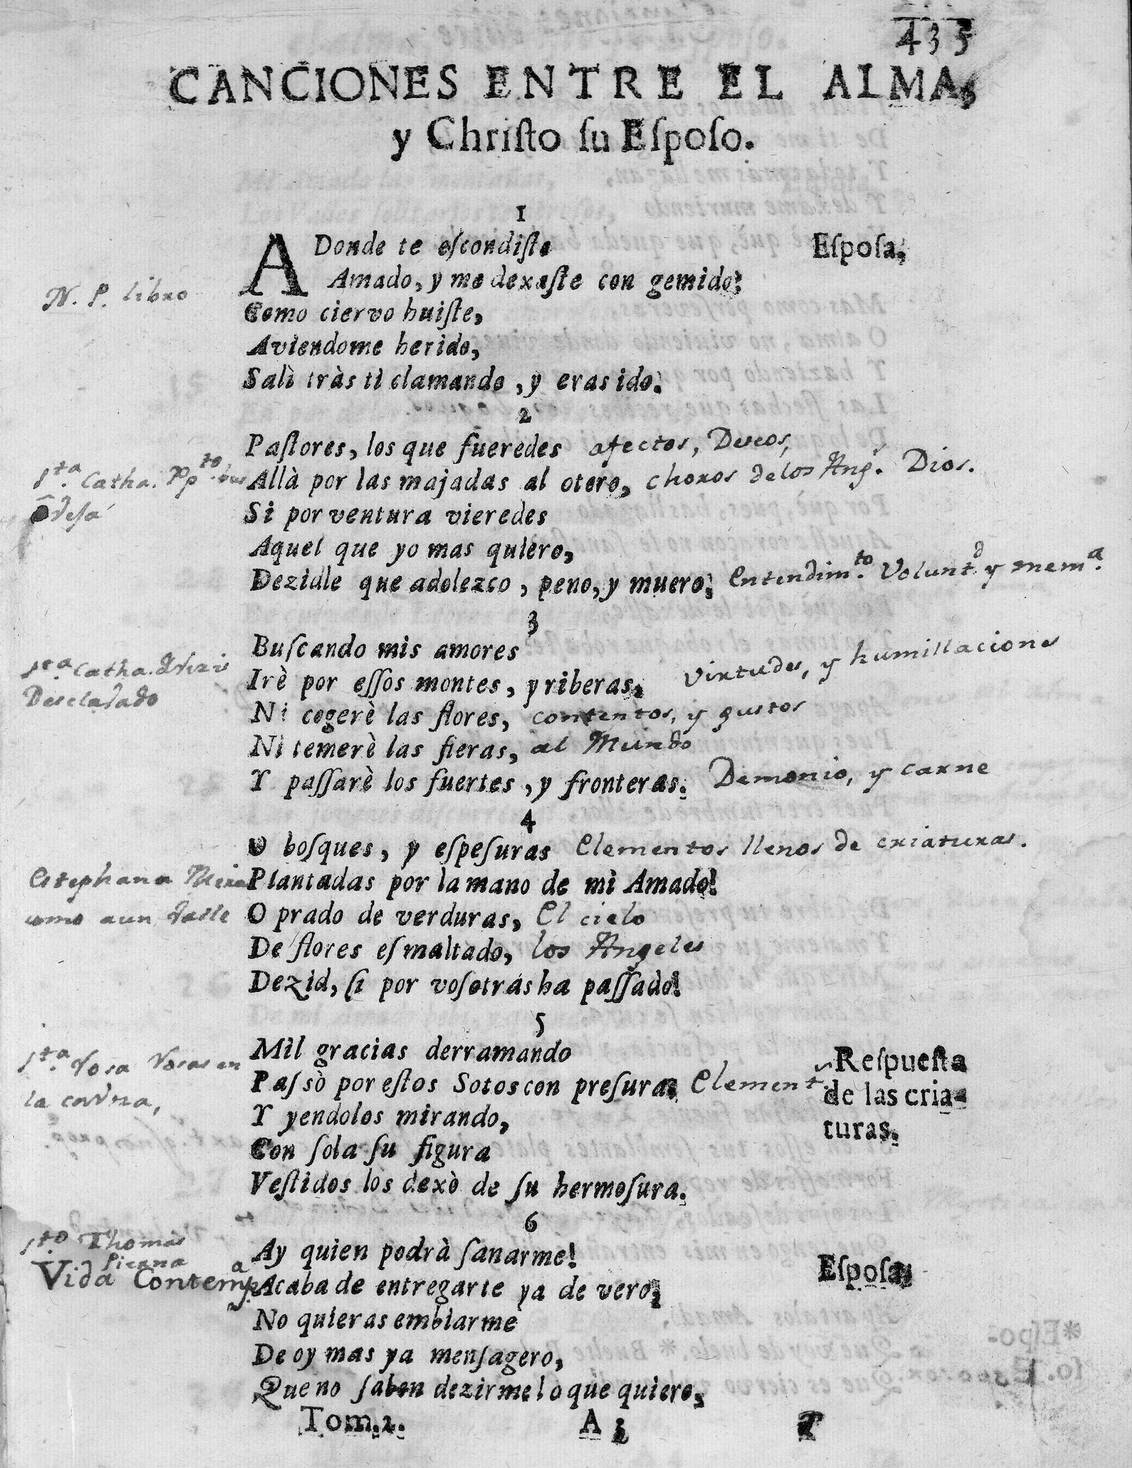 435
CANCIONES ENTRE EL ALMA,
y Christo su Esposo.
1
ADonde te escondiste Esposa,
Amado, y me dexaste con gemido;
N. P. libro
Como ciervo huiste,
Aviendome herido,
Salì tràs ti clamando, y eras ido.
2
Pastores, los que fueredes afectos, Deseos,
Allà por las majadas al otero, choros de los Ang.s Dios.
Sta. Catha.
Si por ventura vieredes
Aquel que yo mas quiero,
Dezidle que adolezco, peno, y muero; Entendim.to Volunt.d y mem.a
3
Buscando mis amores
Sta Catha.
Irè por essos montes, y riberas, virtudes, y humillacione
Desclavado
Ni cogerè las flores, contentos, y gustos
Ni temerè las fieras, al Mundo
Y passarè los fuertes, y fronteras. Demonio, y carne
4
O bosques, y espesuras Elementos llenos de criaturas.
Estephana
Plantadas por la mano de mi Amado!
como aun
O prado de verduras, El cielo
De flores esmaltado, los Angeles
Dezid, si por vosotras ha passado!
5
Mil gracias derramando Respuesta
Sta. Rosa Rosas en
Passò por estos Sotos con presura, Element.s de las cria-
la
Y yendolos mirando, turas.
Con sola su figura
Vestidos los dexò de su hermosura.
6
Sto Thomas
Ay quien podrà sanarme! Esposa,
Vida Contemp.a
Acaba de entregarte ya de vero,
No quieras embiarme
De oy mas ya mensagero,
Que no saben dezirme lo que quiero,
Tom. 2. A